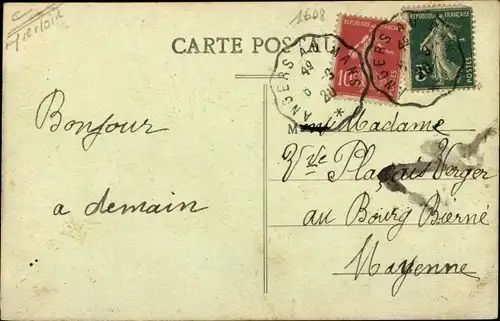 1608
CARTE POSTALE
REPUBLIQUE FRANÇAISE
REPUBLIQUE FRANÇAISE
POSTES
10
ANGERS A MANS
Bonjour
a demain
Madame
Vve Plaçais Verger
au Bourg Bierné
Mayenne